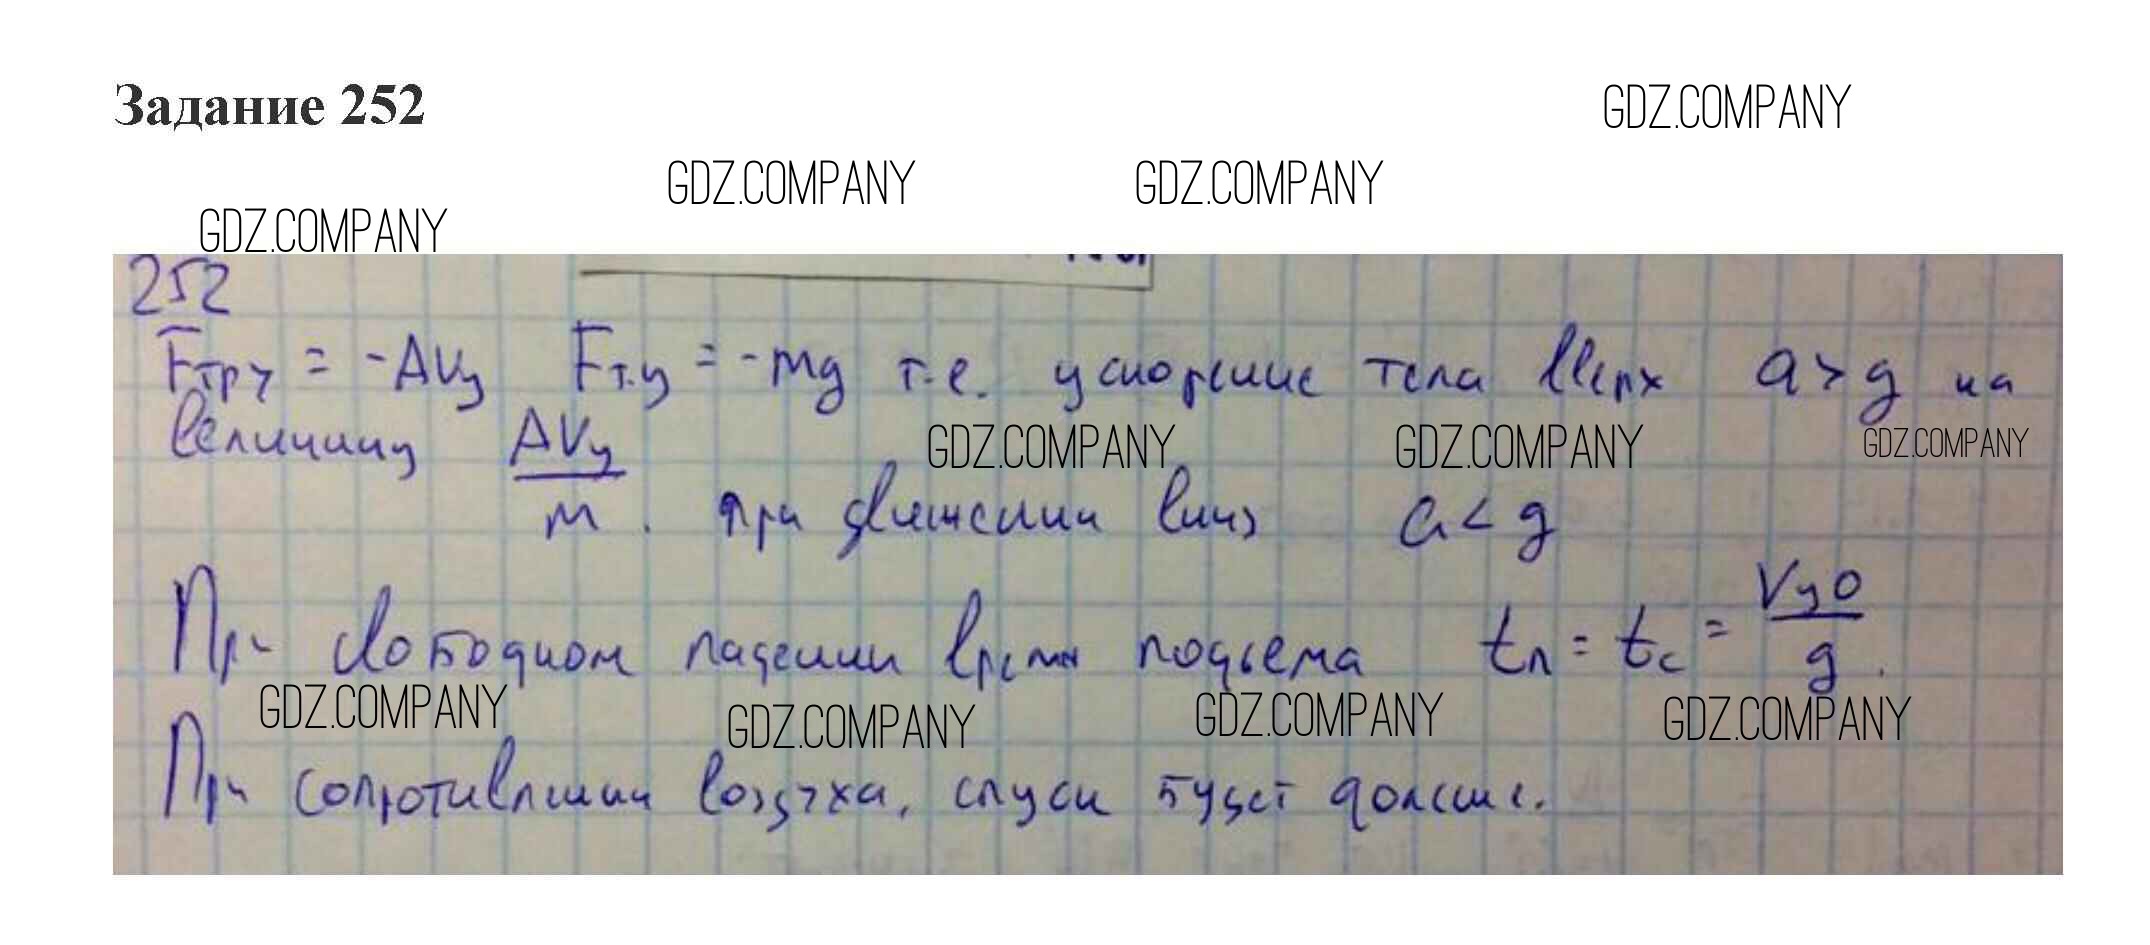 Задание 252
GDZ.COMPANY
GDZ.COMPANY GDZ.COMPANY
GDZ.COMPANY
252
Fтр y = -AVy Fт.y = -mg т.е. ускорение тела вверх a > g на
величину AVy/m. при движении вниз a < g
GDZ.COMPANY GDZ.COMPANY GDZ.COMPANY
При свободном падении время подъема tп = tс = Vy0/g.
GDZ.COMPANY GDZ.COMPANY GDZ.COMPANY GDZ.COMPANY
При сопротивлении воздуха, спуск будет дольше.